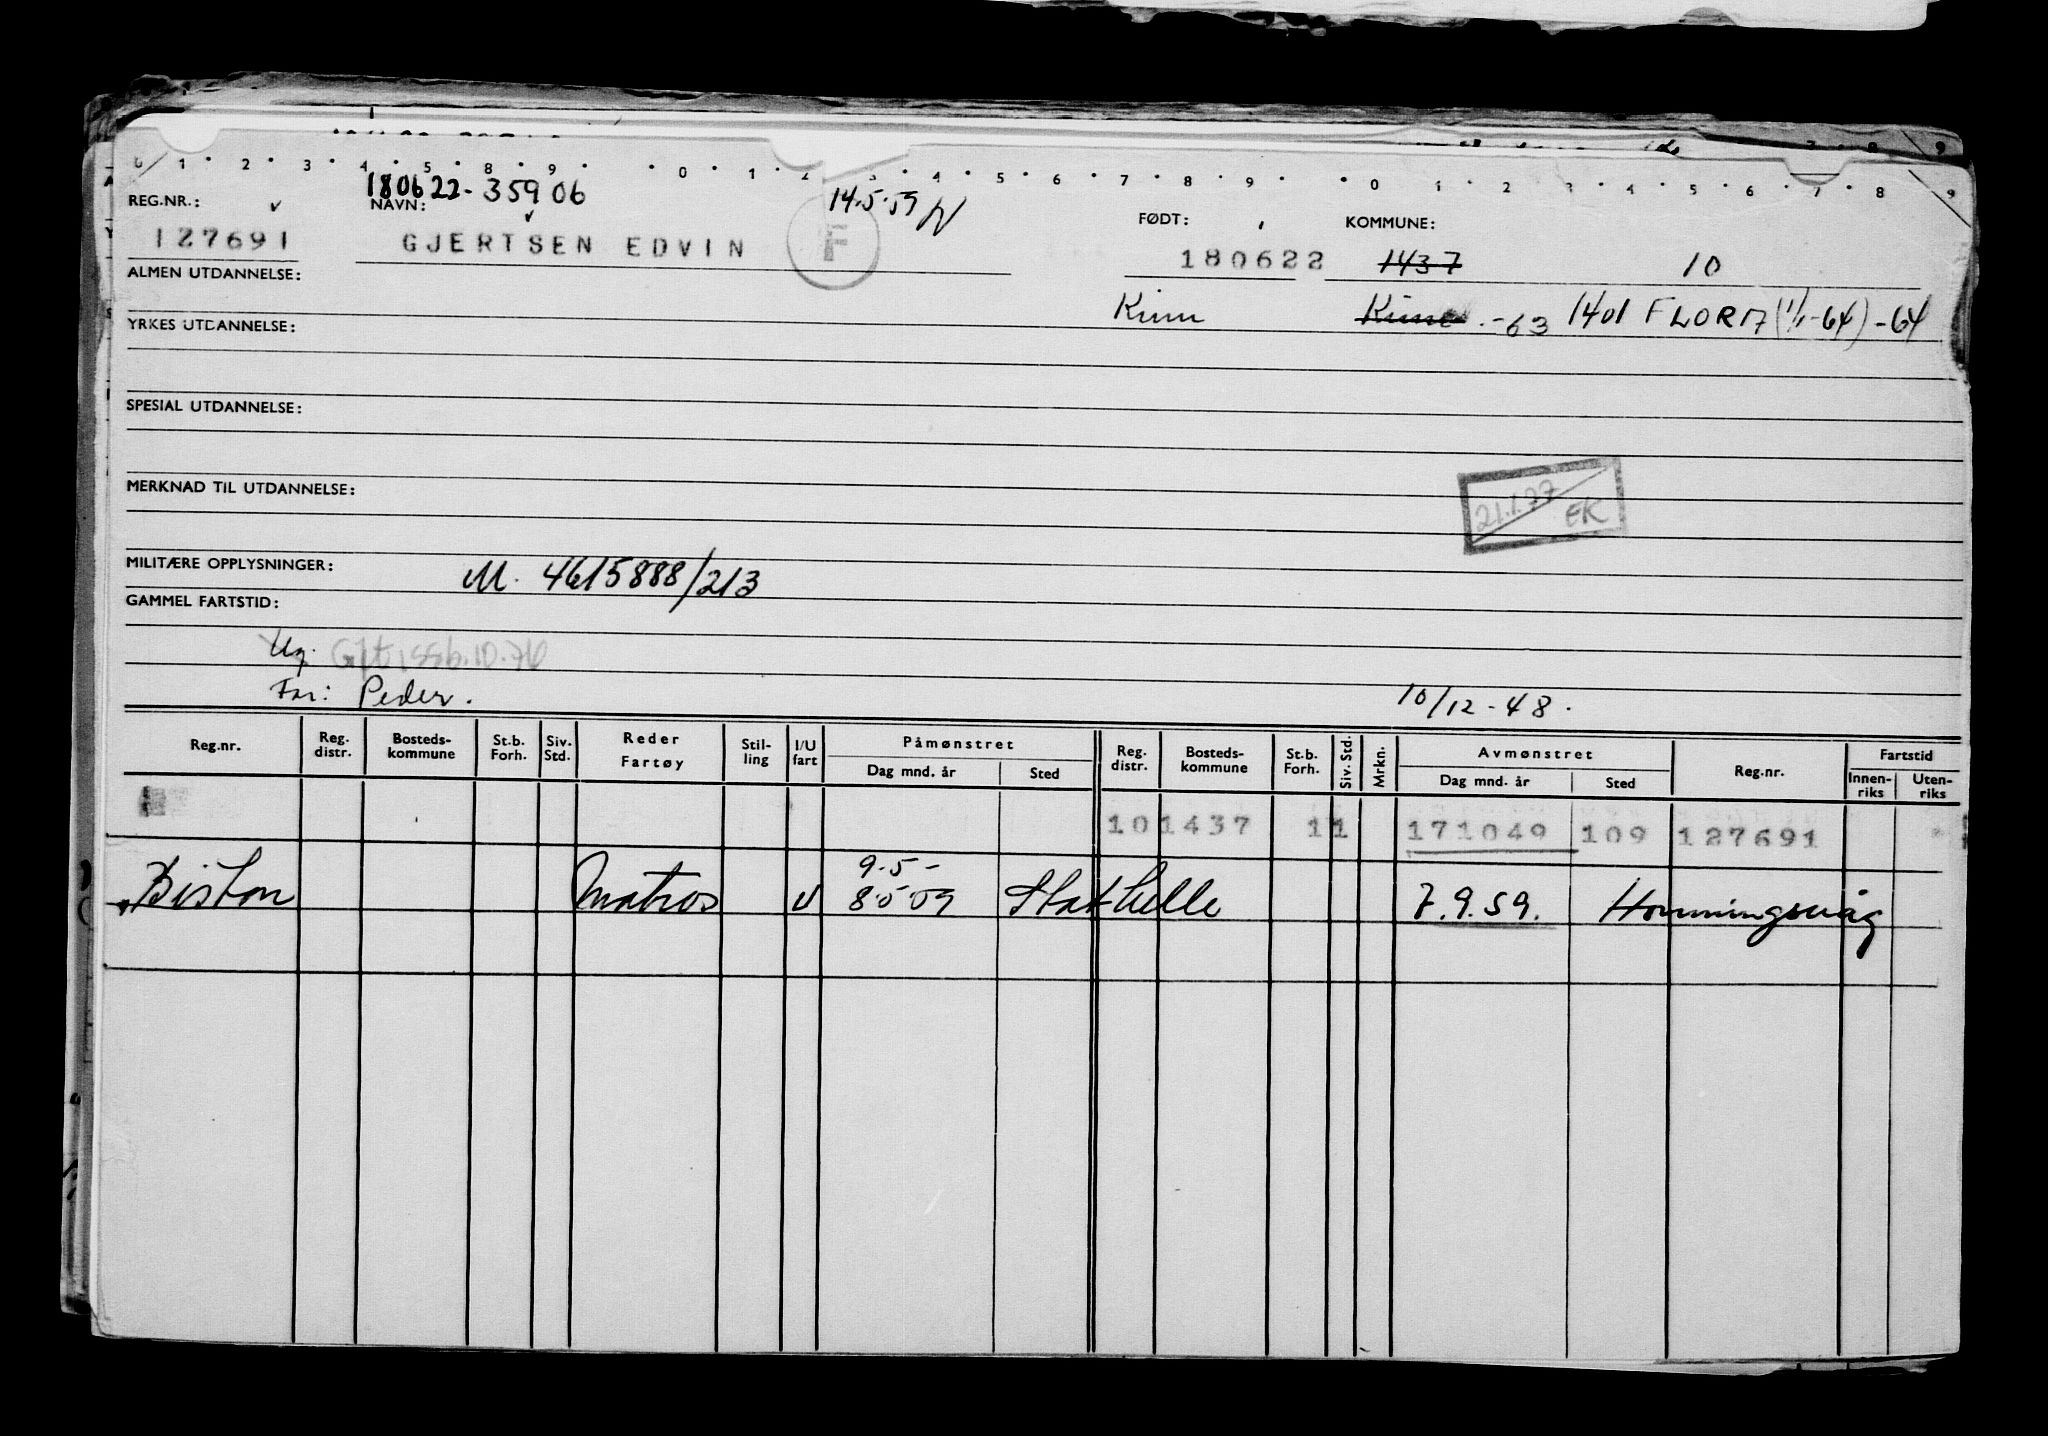 0 1 2 3 4 5 8 9 0 1 2 3 4 5 6 7 8 9 0 1 2 3 4 5 6 7 8 9
180622-35906 14.5.59
REG.NR.: NAVN: FØDT: KOMMUNE:
127691 GJERTSEN EDVIN F 180622 1437 10
ALMEN UTDANNELSE:
Kinn Kinn -63 1401 FLORA (1/1-64) -64
YRKES UTDANNELSE:
SPESIAL UTDANNELSE:
MERKNAD TIL UTDANNELSE:
21.1.77 EK
MILITÆRE OPPLYSNINGER: M. 4615888/213
GAMMEL FARTSTID:
Ug. Gift 10.76
Far: Peder. 10/12-48.
Reg.nr. Reg. distr. Bosteds-kommune St.b. Forh. Siv. Std. Reder Fartøy Stil-ling I/U fart Påmønstret Dag mnd. år Sted Reg. distr. Bosteds-kommune St.b. Forh. Siv. Std. Mrkn. Avmønstret Dag mnd. år Sted Reg.nr. Fartstid Innen-riks Uten-riks
10 1437 11 171049 109 127691
9.5-
Biston Matros U 8.5.59 Stathelle 7.9.59. Honningsvåg